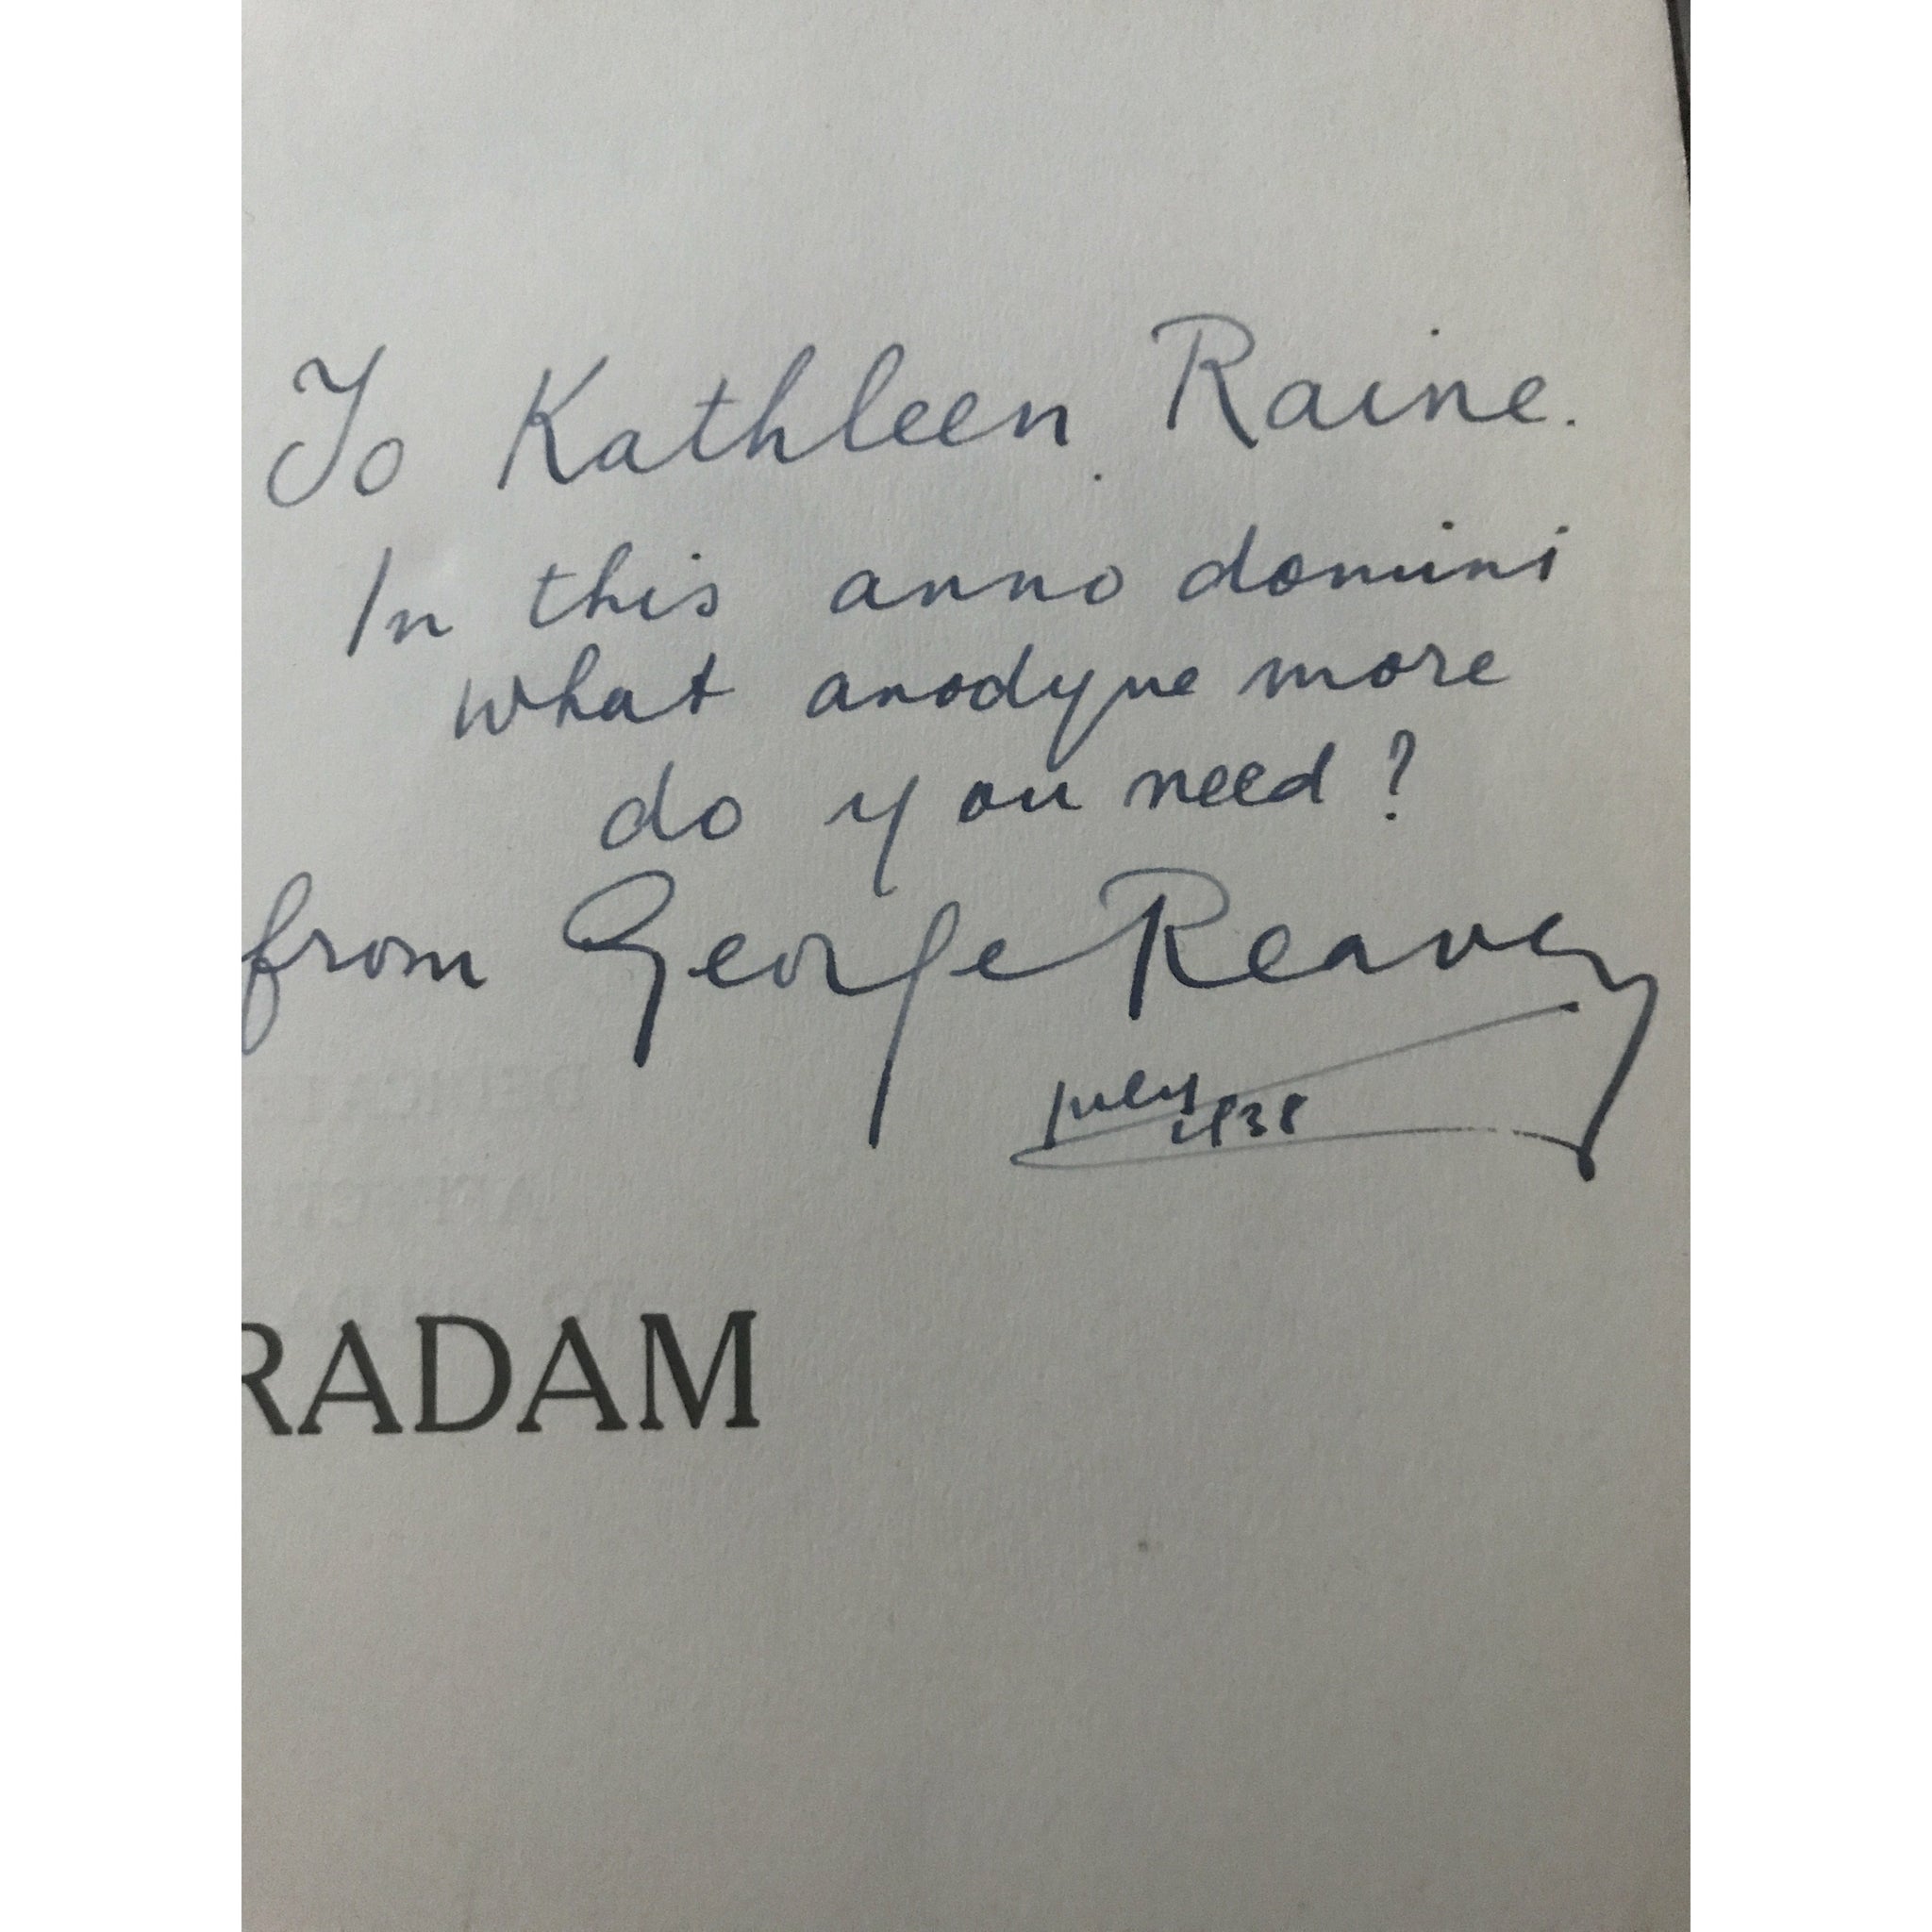 To Kathleen Raine.
In this anno domini
what anodyne more
do you need?
from George Reavey
July
1938
RADAM